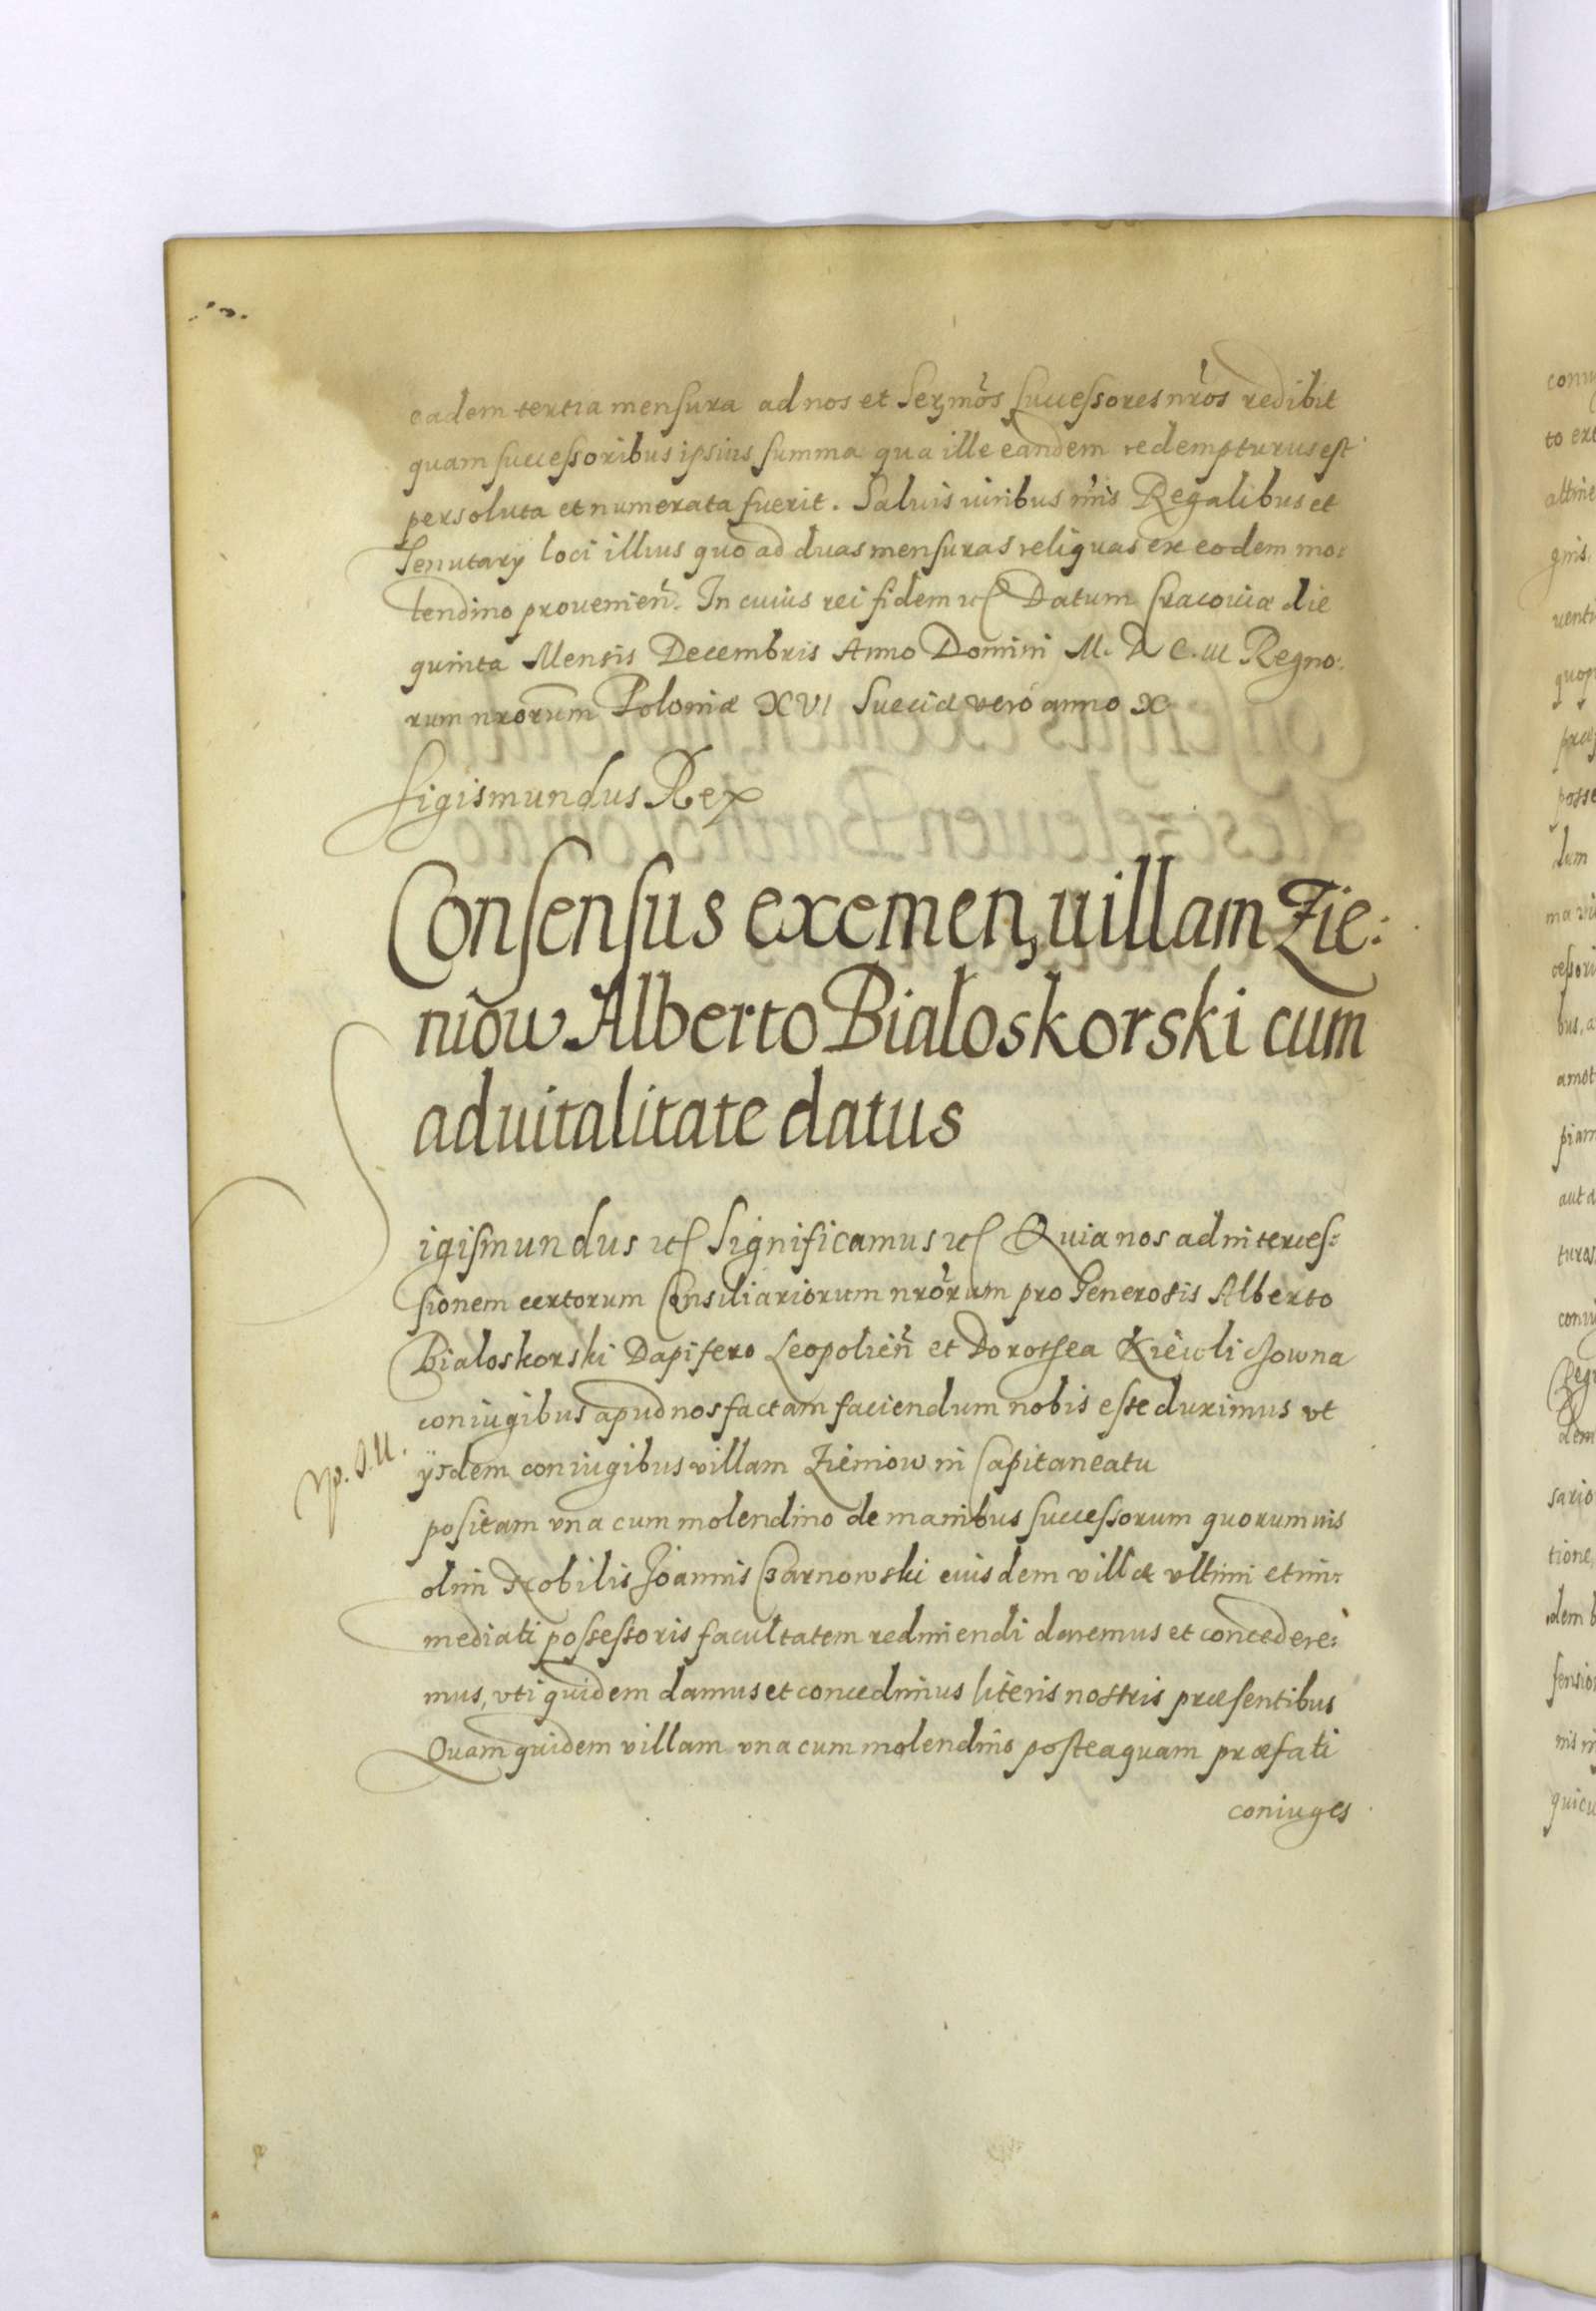 eadem tertia mensura ad nos et Sermos̃ successores nr̃os redibit
quam successoribus ipsius summa qua ille eandem redempturus est
persoluta et numerata fuerit. Saluis iuribus nr̃is Regalibus et
Tenutarÿ loci illius quo ad duas mensuras reliquas ex eodem mo:
lendino prouenien̄. In cuius rei fidem etc Datum Cracouiæ die
quinta Mensis Decembris Anno Domini M. D C. III Regno:
rum nrōrum Poloniæ XVI Sueciæ verò anno X
Sigismundus Rex
Consensus eximen, uillam Zie:
niow Alberto Białoskorski cum
aduitalitate datus
Sigismundus etc Significamus etc Quia nos ad interces:
sionem certorum Consiliariorum nrōrum pro Generosis Alberto
Bialoskorski Dapifero Leopolien̄ et Dorothea
coniugibus apud nos factam faciendum nobis esse duximus vt
ÿsdem coniugibus villam Zieniow in Capitaneatu
positam vna cum molendino de manibus successorum quorumuis
olim Nobilis Joannis Czarnowski eiusdem villæ vltimi et im:
mediati possessoris facultatem redimendi daremus et concedere:
mus, vti quidem damus et concedimus literis nostris præsentibus
Quam quidem villam vna cum molendino posteaquam præfati
coniuges